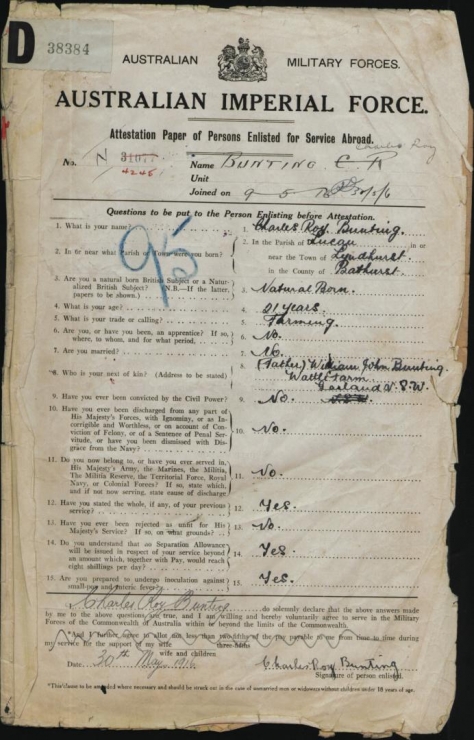 D 38384
AUSTRALIAN MILITARY FORCES.
AUSTRALIAN IMPERIAL FORCE.
Attestation Paper of Persons Enlisted for Service Abroad.
Charles Roy
No. N 31077 Name BUNTING C R
4245 Unit
Joined on 9 5 30/5/6
Questions to be put to the Person Enlisting before Attestation.
95
1. What is your name? 1. Charles Roy Bunting.
2. In or near what Parish or Town were you born? 2. In the Parish of Lucan in or
near the Town of Lyndhurst
in the County of Bathurst
3. Are you a natural born British Subject or a Natur-
alized British Subject? (N.B.—If the latter,
papers to be shown) 3. Natural Born.
4. What is your age? 4. 21 years.
5. What is your trade or calling? 5. Farming.
6. Are you, or have you been, an apprentice? If so,
where, to whom, and for what period. 6. No.
7. Are you married? 7. No.
*8. Who is your next of kin? (Address to be stated) 8. (Father) William John Bunting.
Wattle Farm
Garland N.S.W.
9. Have you ever been convicted by the Civil Power? 9. No.
10. Have you ever been discharged from any part of
His Majesty's Forces, with Ignominy, or as In-
corrigible and Worthless, or on account of Con-
viction of Felony, or of a Sentence of Penal Ser-
vitude, or have you been dismissed with Dis-
grace from the Navy? 10. No.
11. Do you now belong to, or have you ever served in,
His Majesty's Army, the Marines, the Militia,
The Militia Reserve, the Territorial Force, Royal
Navy, or Colonial Forces? If so, state which,
and if not now serving, state cause of discharge 11. No.
12. Have you stated the whole, if any, of your previous
service? 12. Yes.
13. Have you ever been rejected as unfit for His
Majesty's Service? If so, on what grounds? 13. No.
14. Do you understand that no Separation Allowance
will be issued in respect of your service beyond
an amount which, together with Pay, would reach
eight shillings per day? 14. Yes.
15. Are you prepared to undergo inoculation against
small-pox and enteric fever? 15. Yes.
I, Charles Roy Bunting do solemnly declare that the above answers made
by me to the above questions are true, and I am willing and hereby voluntarily agree to serve in the Military
Forces of the Commonwealth of Australia within or beyond the limits of the Commonwealth.
*And I further agree to allot not less than two-fifths of the pay payable to me from time to time during
my service for the support of my wife three-fifths
wife and children
Date 30th May 1916 Charles Roy Bunting
Signature of person enlisted.
*This clause to be amended where necessary and should be struck out in the case of unmarried men or widowers without children under 18 years of age.